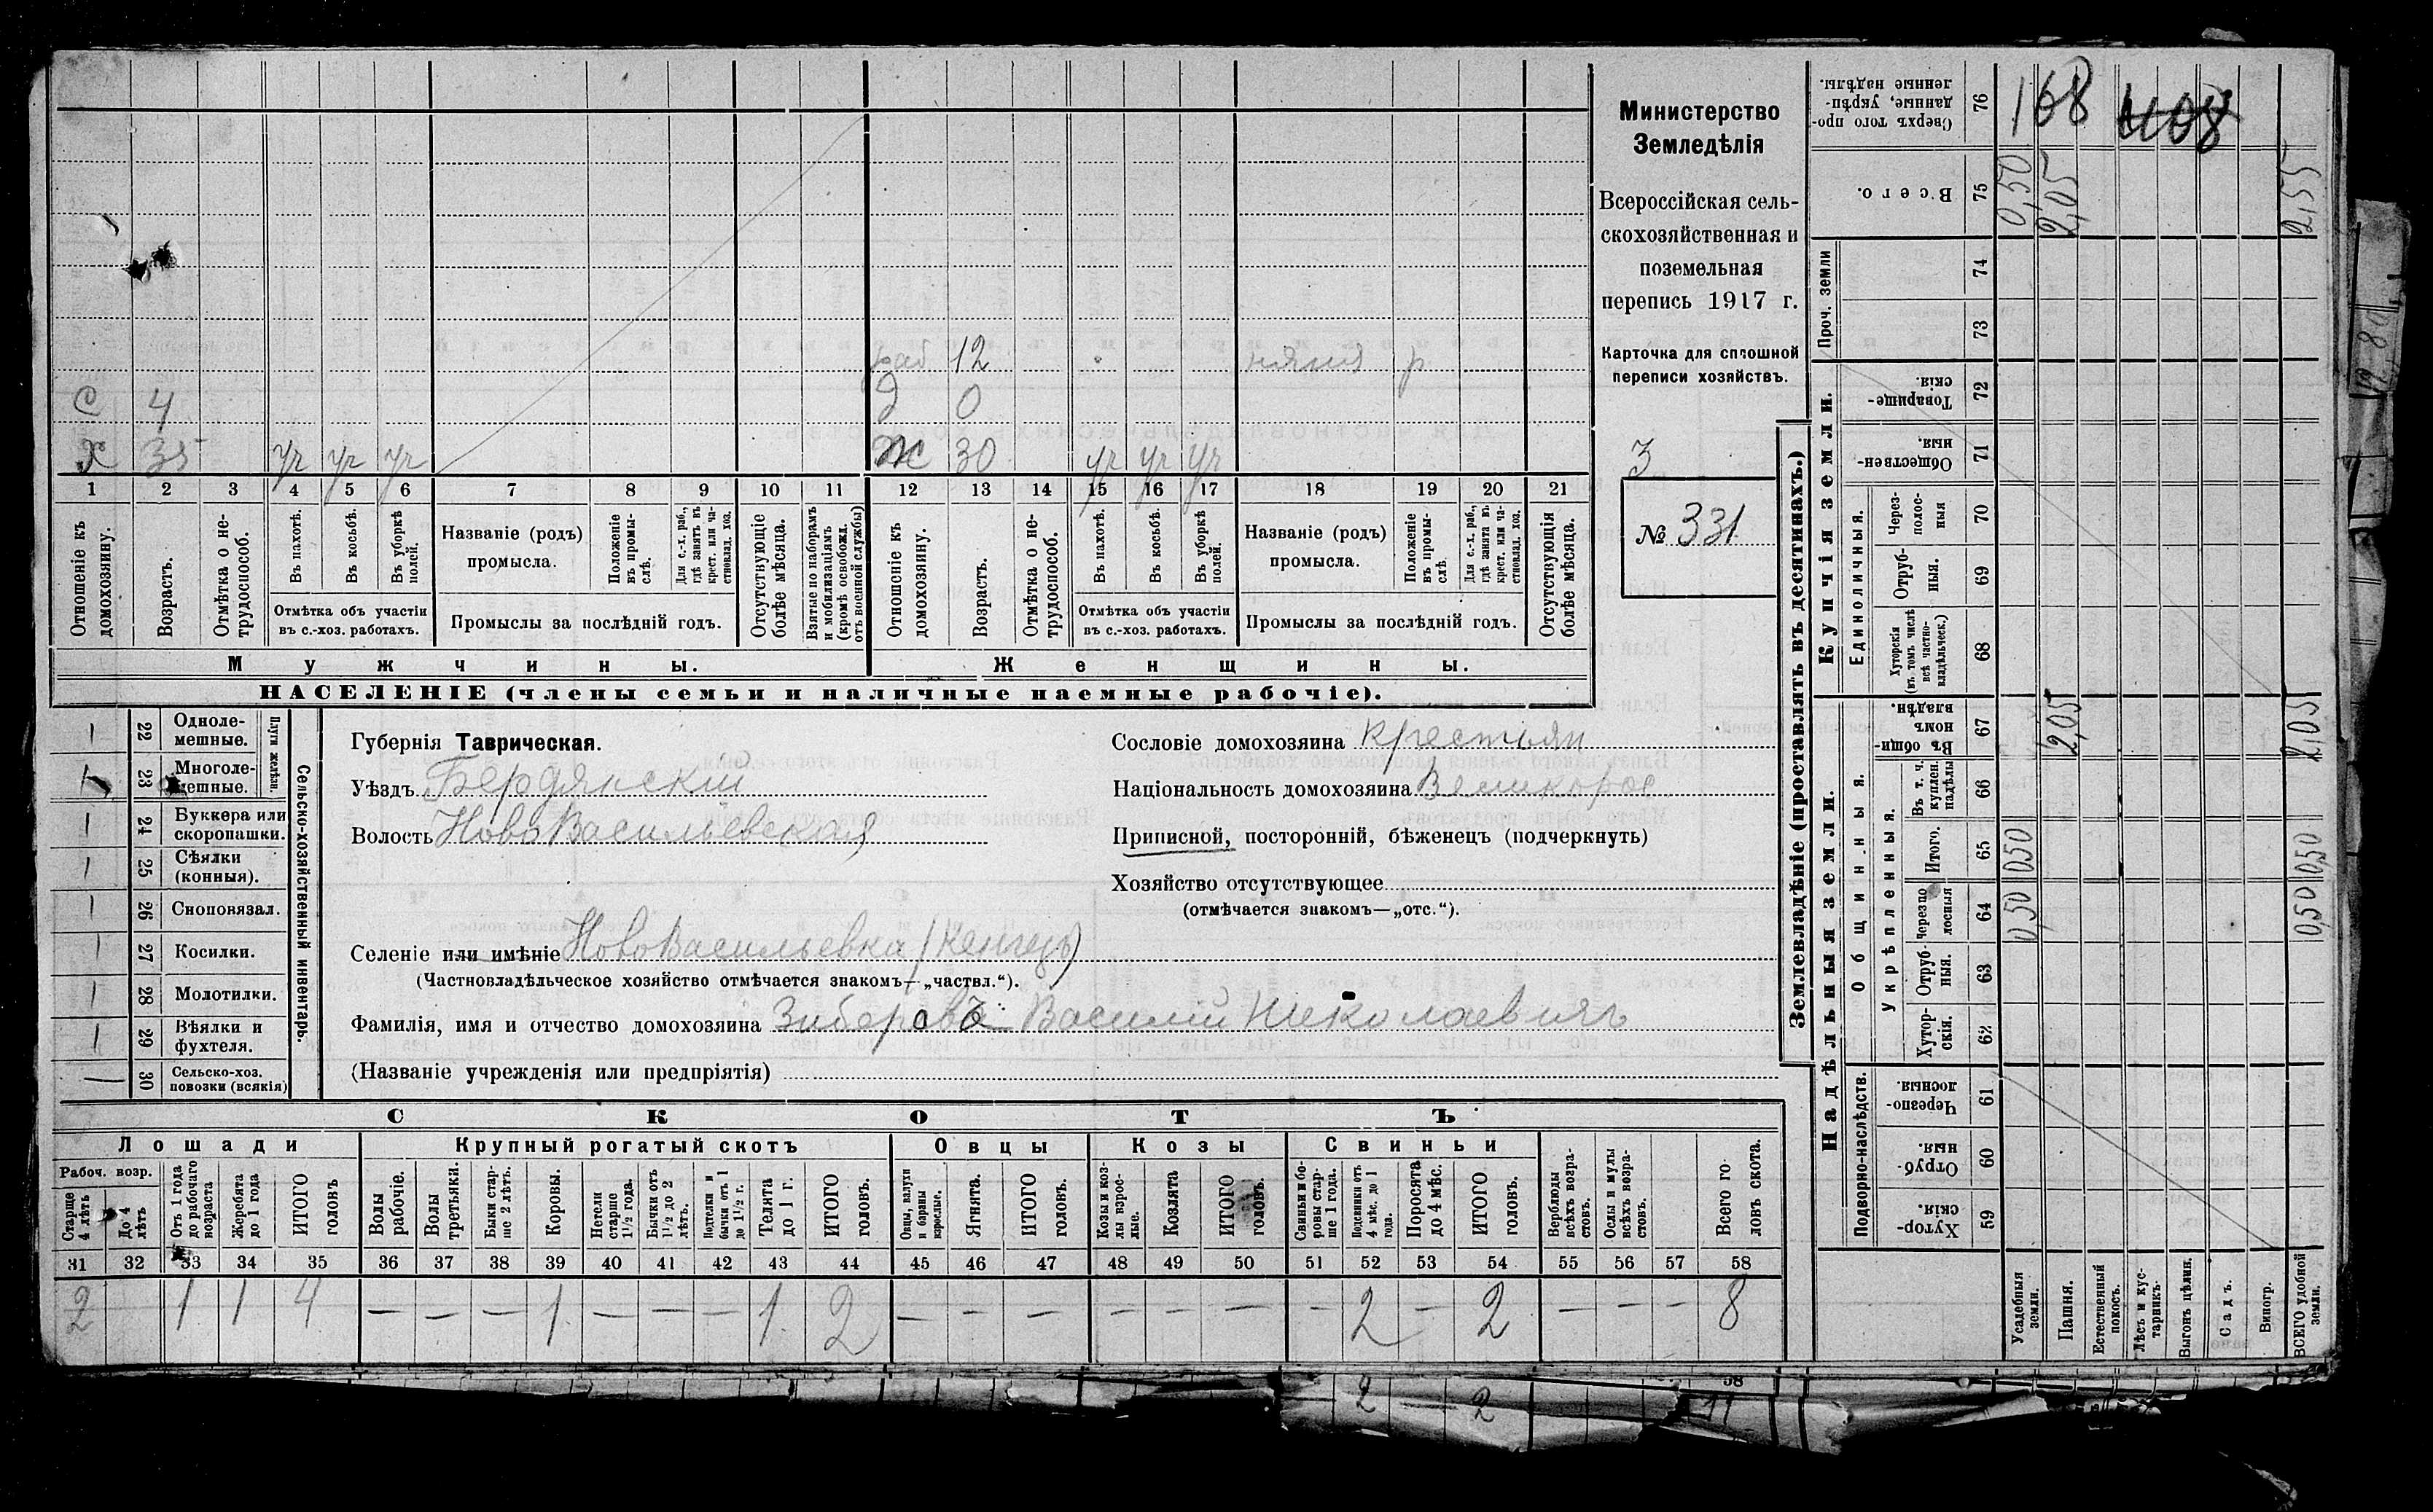 Министерство
Земледѣлія
Всероссійская сель-
скохозяйственная и
поземельная
перепись 1917 г.
Карточка для сплошной
переписи хозяйствъ.
3
№ 331
раб 12 няня р
С 4 д 0
Х 35 уч уч уч Ж 30 уч уч уч
1 2 3 4 5 6 7 8 9 10 11 12 13 14 15 16 17 18 19 20 21
Отношеніе къ домохозяину.
Возрастъ.
Отмѣтка о не-
трудоспособ.
Въ пахотѣ.
Въ косьбѣ.
Въ уборкѣ
полей.
Отмѣтка объ участіи
въ с.-хоз. работахъ.
Названіе (родъ)
промысла.
Положеніе
въ промы-
слѣ.
Для с.-х. раб.,
гдѣ занятъ въ
крест. или ча-
стновлад. хоз.
Промыслы за послѣдній годъ.
Отсутствующіе
болѣе мѣсяца.
Взятые по наборамъ
и мобилизаціямъ
(кромѣ освобожд.
отъ военной службы)
Отношеніе къ
домохозяину.
Возрастъ.
Отмѣтка о не-
трудоспособ.
Въ пахотѣ.
Въ косьбѣ.
Въ уборкѣ
полей.
Отмѣтка объ участіи
въ с.-хоз. работахъ.
Названіе (родъ)
промысла.
Положеніе
въ промы-
слѣ
Для с.-х. раб.,
гдѣ занята въ
крест. или ча-
стновлад. хоз.
Промыслы за послѣдній годъ.
Отсутствующія
болѣе мѣсяца.
Мужчины. Женщины.
НАСЕЛЕНІЕ (члены семьи и наличные наемные рабочіе).
1 22 Одноле-
мешные.
23 Многоле-
мешные.
Плуги желѣзн.
1 24 Буккера или
скоропашки.
1 25 Сѣялки
(конныя).
1 26 Сноповязал.
1 27 Косилки.
1 28 Молотилки.
1 29 Вѣялки и
фухтеля.
— 30 Сельско-хоз.
повозки (всякія)
Сельско-хозяйственный инвентарь.
Губернія Таврическая.
Уѣздъ Бердянскій
Волость НовоВасильевская
Селеніе или имѣніе НовоВасильевка (Кенгезъ)
(Частновладѣльческое хозяйство отмѣчается знакомъ—„частвл.“).
Фамилія, имя и отчество домохозяина Зиберовъ Василій Николаевичъ
(Названіе учрежденія или предпріятія)
Сословіе домохозяина крестьян
Національность домохозяина Великорос
Приписной, посторонній, бѣженецъ (подчеркнуть)
Хозяйство отсутствующее
(отмѣчается знакомъ—„отс.“).
СКОТЪ
Лошади Крупный рогатый скотъ Овцы Козы Свиньи
Рабоч. возр.
Старше
4 лѣтъ
До 4
лѣтъ
Отъ 1 года
до рабочаго
возраста
Жеребята
до 1 года
ИТОГО
головъ
Волы
рабочіе.
Волы
третьяки.
Быки стар-
ше 2 лѣтъ.
Коровы.
Нетели
старше
1½ года.
Бычки отъ
1½ до 2
лѣтъ.
Подтелки и
бычки отъ 1
до 1½ г.
Телята
до 1 г.
ИТОГО
головъ.
Овцы, валухи
и бараны
взрослые.
Ягнята.
ИТОГО
головъ.
Козы и коз-
лы взрос-
лые.
Козлята
ИТОГО
головъ.
Свиньи и бо-
ровы стар-
ше 1 года.
Подсвинки отъ
4 мѣс. до 1
года.
Поросята
до 4 мѣс.
ИТОГО
головъ.
Верблюды
всѣхъ возра-
стовъ.
Ослы и мулы
всѣхъ возра-
стовъ.
Всего го
ловъ скота.
31 32 33 34 35 36 37 38 39 40 41 42 43 44 45 46 47 48 49 50 51 52 53 54 55 56 57 58
2 1 1 4 — — — 1 — — — 1 2 — — — — — — — 2 — 2 — — — 8
Землевладѣніе (проставлять въ десятинахъ.)
Купчія земли.
Надѣльныя земли.
Проч. земли
Единоличныя.
Общинныя.
Укрѣпленныя.
Подворно-наслѣдств.
Сверхъ того про-
данные, укрѣп-
ленные надѣлы. 76 168
Всего. 75 0,50 2,05 2,55
74
73
Товарище-
скія. 72
Обществен-
ныя. 71
Через-
полос-
ныя 70
Отруб-
ныя. 69
Хуторскія
(въ томъ числѣ
всѣ частно-
владѣльческ.) 68
Въ общин-
номъ
владѣн. 67 2,05 2,05
Въ т. ч.
куплен.
надѣлы 66
Итого. 65 0,50 0,50
Черезпо
лосныя 64 0,50 0,50
Отруб-
ныя. 63
Хутор-
скія. 62
Черезпо-
лосныя. 61
Отруб-
ныя. 60
Хутор-
скія. 59
Усадебныя
земли.
Пашня.
Естественный
покосъ.
Лѣсъ и кус-
тарникъ.
Выгонъ цѣлин.
Садъ.
Виногр.
ВСЕГО удобной
земли.
58
2 2 11